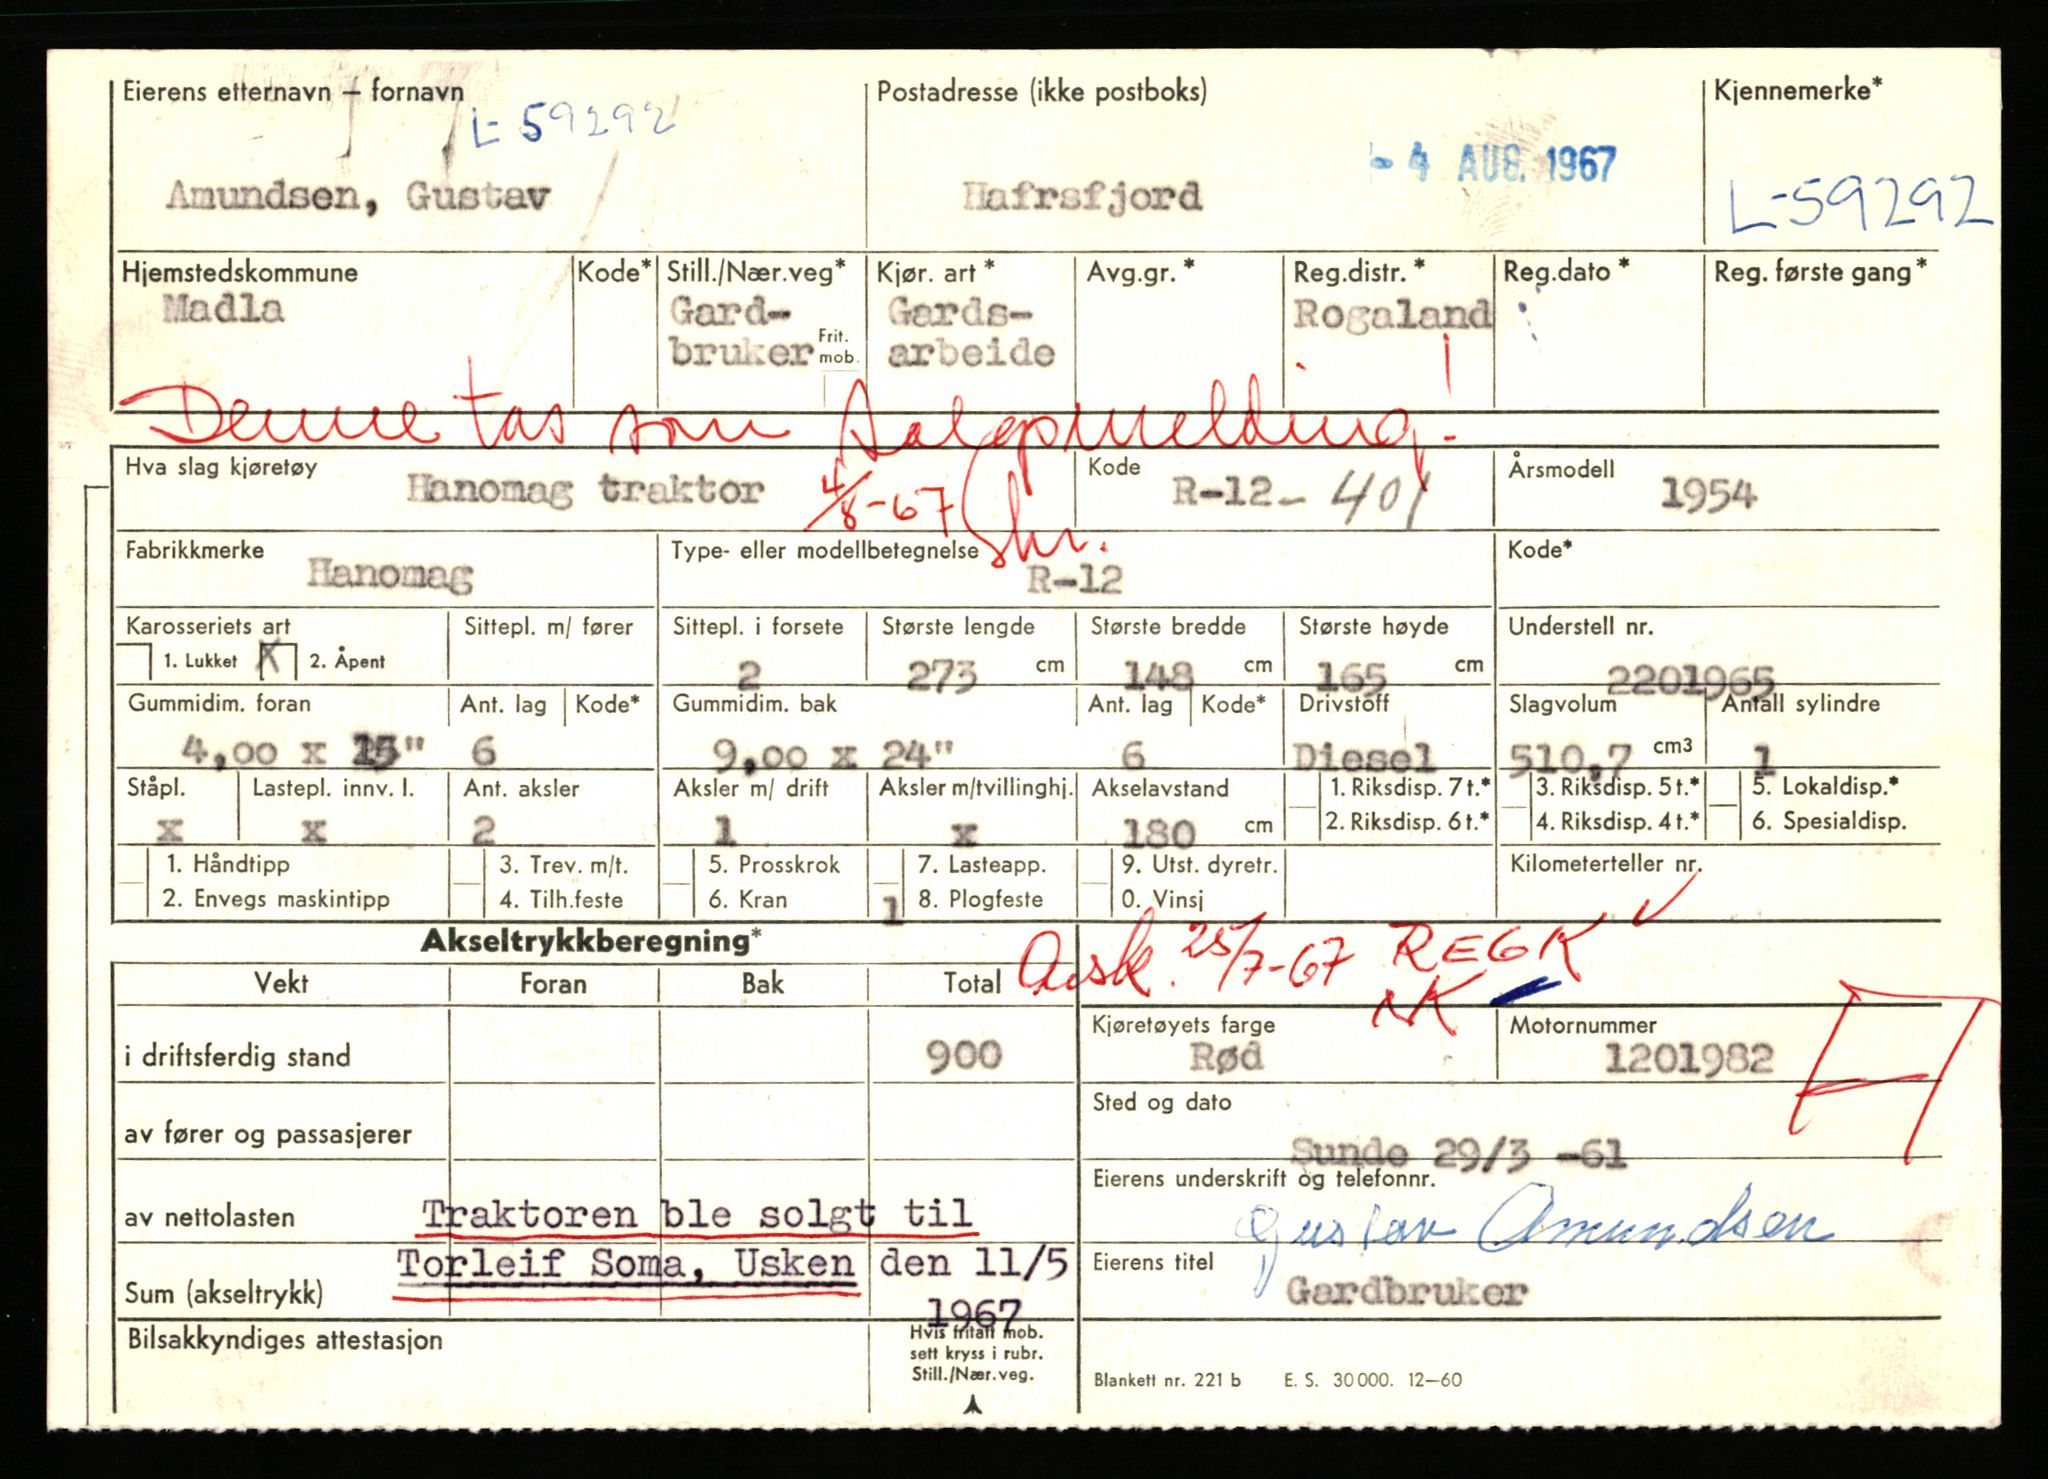 Eierens etternavn – fornavn
L-59292
Amundsen, Gustav
Postadresse (ikke postboks)
- 4 AUG. 1967
Hafrsfjord
Kjennemerke*
L-59292
Hjemstedskommune
Madla
Kode*
Still./Nær.veg*
Gard-
bruker
Frit.
mob.
Kjør. art *
Gards-
arbeide
Avg.gr. *
Reg.distr. *
Rogaland
Reg.dato *
Reg. første gang*
Denne tas som Salgsmelding!
4/8-67
Hva slag kjøretøy
Hanomag traktor
Kode
R-12 - 401
Årsmodell
1954
Fabrikkmerke
Hanomag
Type- eller modellbetegnelse
R-12
Kode*
Karosseriets art
1. Lukket X 2. Åpent
Sittepl. m/ fører
Sittepl. i forsete
2
Største lengde
273 cm
Største bredde
148 cm
Største høyde
165 cm
Understell nr.
2201965
Gummidim. foran
4,00 x 15"
Ant. lag
6
Kode*
Gummidim. bak
9,00 x 24"
Ant. lag
6
Kode*
Drivstoff
Diesel
Slagvolum
510,7 cm3
Antall sylindre
1
Ståpl.
x
Lastepl. innv. l.
x
Ant. aksler
2
Aksler m/ drift
1
Aksler m/tvillinghj.
x
Akselavstand
180 cm
1. Riksdisp. 7 t.*
2. Riksdisp. 6 t.*
3. Riksdisp. 5 t.*
4. Riksdisp. 4 t.*
5. Lokaldisp.*
6. Spesialdisp.
1. Håndtipp
2. Envegs maskintipp
3. Trev. m/t.
4. Tilh.feste
5. Prosskrok
6. Kran
7. Lasteapp.
1 8. Plogfeste
9. Utst. dyretr.
0. Vinsj
Kilometerteller nr.
Akseltrykkberegning*
Avsk. 25/7-67 REGK
NK
Vekt Foran Bak Total
i driftsferdig stand 900
av fører og passasjerer
av nettolasten
Traktoren ble solgt til
Torleif Soma, Usken den 11/5
1967
Sum (akseltrykk)
Bilsakkyndiges attestasjon
Hvis fritatt mob.
sett kryss i rubr.
Still./Nær.veg.
Kjøretøyets farge
Rød
Motornummer
1201982
Sted og dato
Sunde 29/3 -61
Eierens underskrift og telefonnr.
Gustav Amundsen
Eierens titel
Gardbruker
Blankett nr. 221 b E. S. 30 000. 12–60